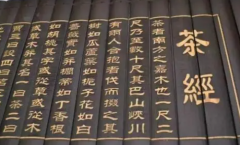 茶經
茶者南方之嘉木也一尺二
尺乃至數十尺其巴山峽川
有兩人合抱者伐而掇之其
樹如瓜蘆葉如梔子花如白
薔薇實如栟櫚蒂如丁香根
如胡桃其字或從草或從木
或草木并其名一曰茶二曰